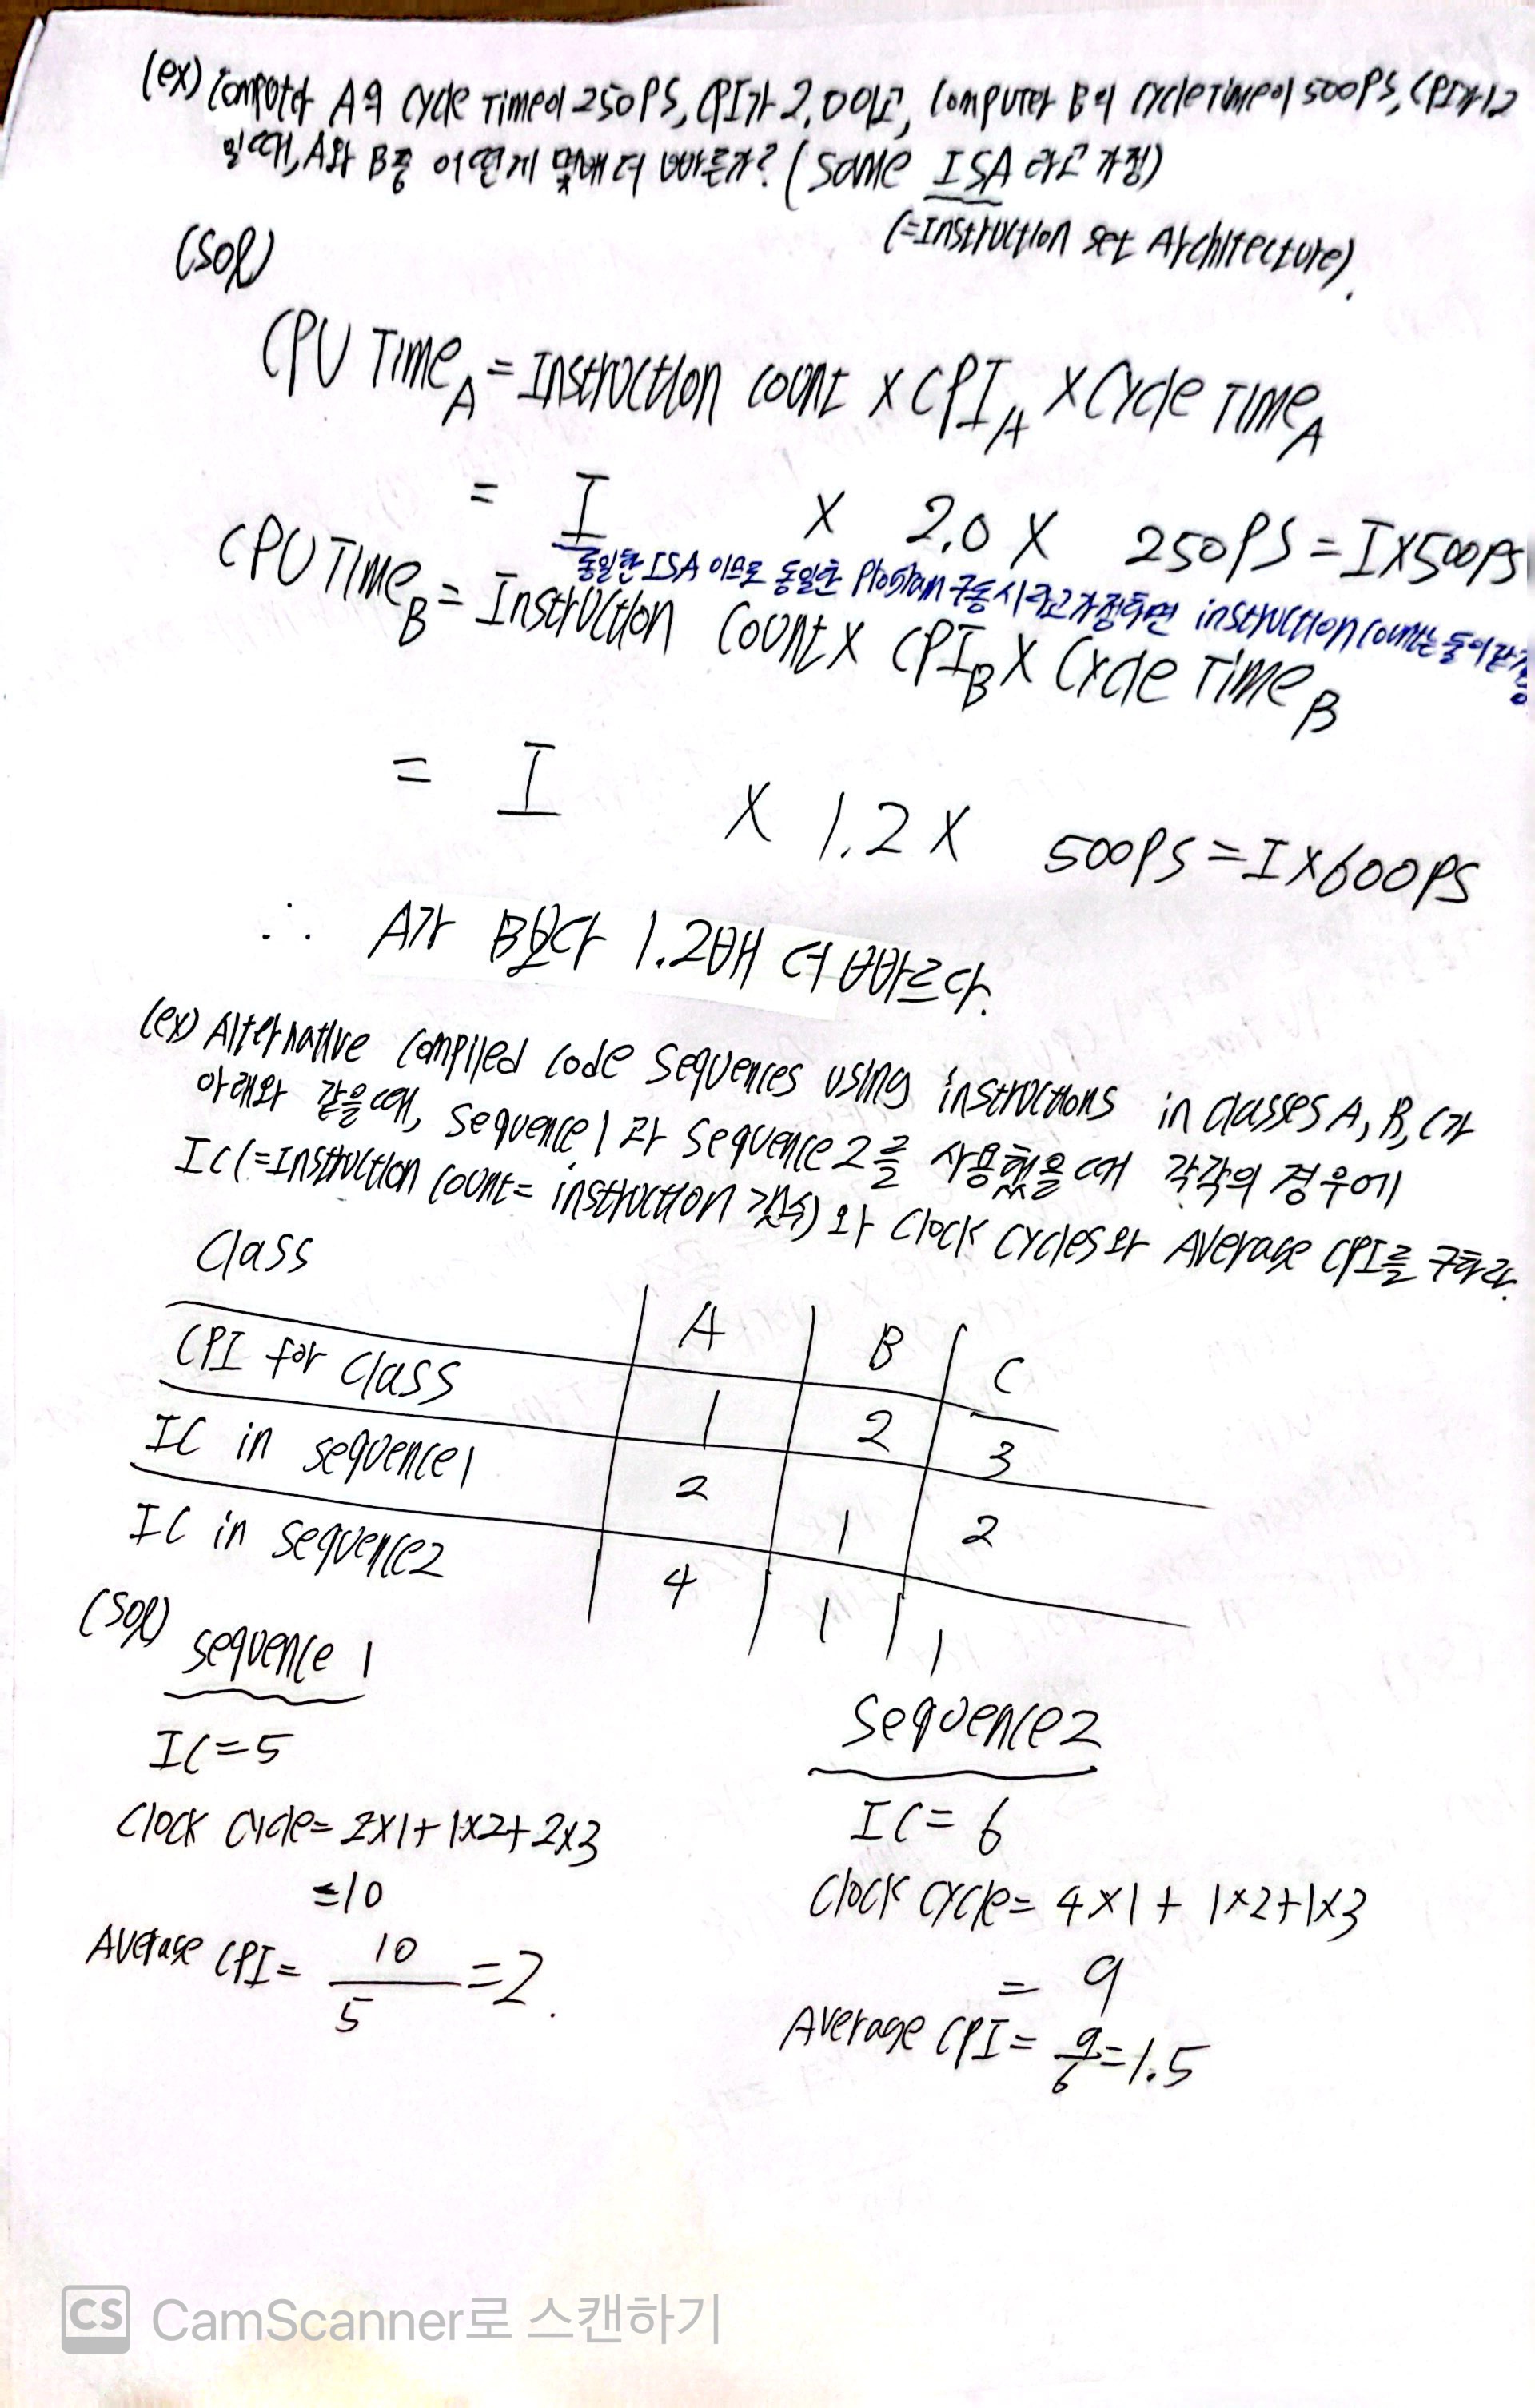 (ex) Computer A의 Cycle Time이 250PS, CPI가 2.0이고, Computer B의 Cycle Time이 500PS, CPI가 1.2
일때, A와 B중 어떤게 몇배 더 빠른가? (same ISA 라고 가정)
(=Instruction set Architecture).
(sol)
CPU Time A = Instruction count x CPI A x Cycle Time A
= I x 2.0 x 250PS = I x 500PS
동일한 ISA 이므로 동일한 Program 구동시라고 가정하면 instruction count는 둘이 같
CPU Time B = Instruction Count x CPI B x Cycle Time B
= I x 1.2 x 500PS = I x 600PS
∴ A가 B보다 1.2배 더 빠르다.
(ex) Alternative compiled code sequences using instructions in classes A, B, C가
아래와 같을때, sequence1과 sequence2를 사용했을때 각각의 경우에
IC(=Instruction count= instruction 갯수)와 Clock Cycles와 Average CPI를 구하라.
Class A B C
CPI for Class 1 2 3
IC in sequence1 2 1 2
IC in sequence2 4 1 1
(sol)
sequence 1
IC=5
Clock Cycle= 2x1+1x2+2x3
=10
Average CPI= 10/5 =2.
Sequence2
IC=6
Clock Cycle= 4x1+1x2+1x3
= 9
Average CPI= 9/6=1.5
CS CamScanner로 스캔하기